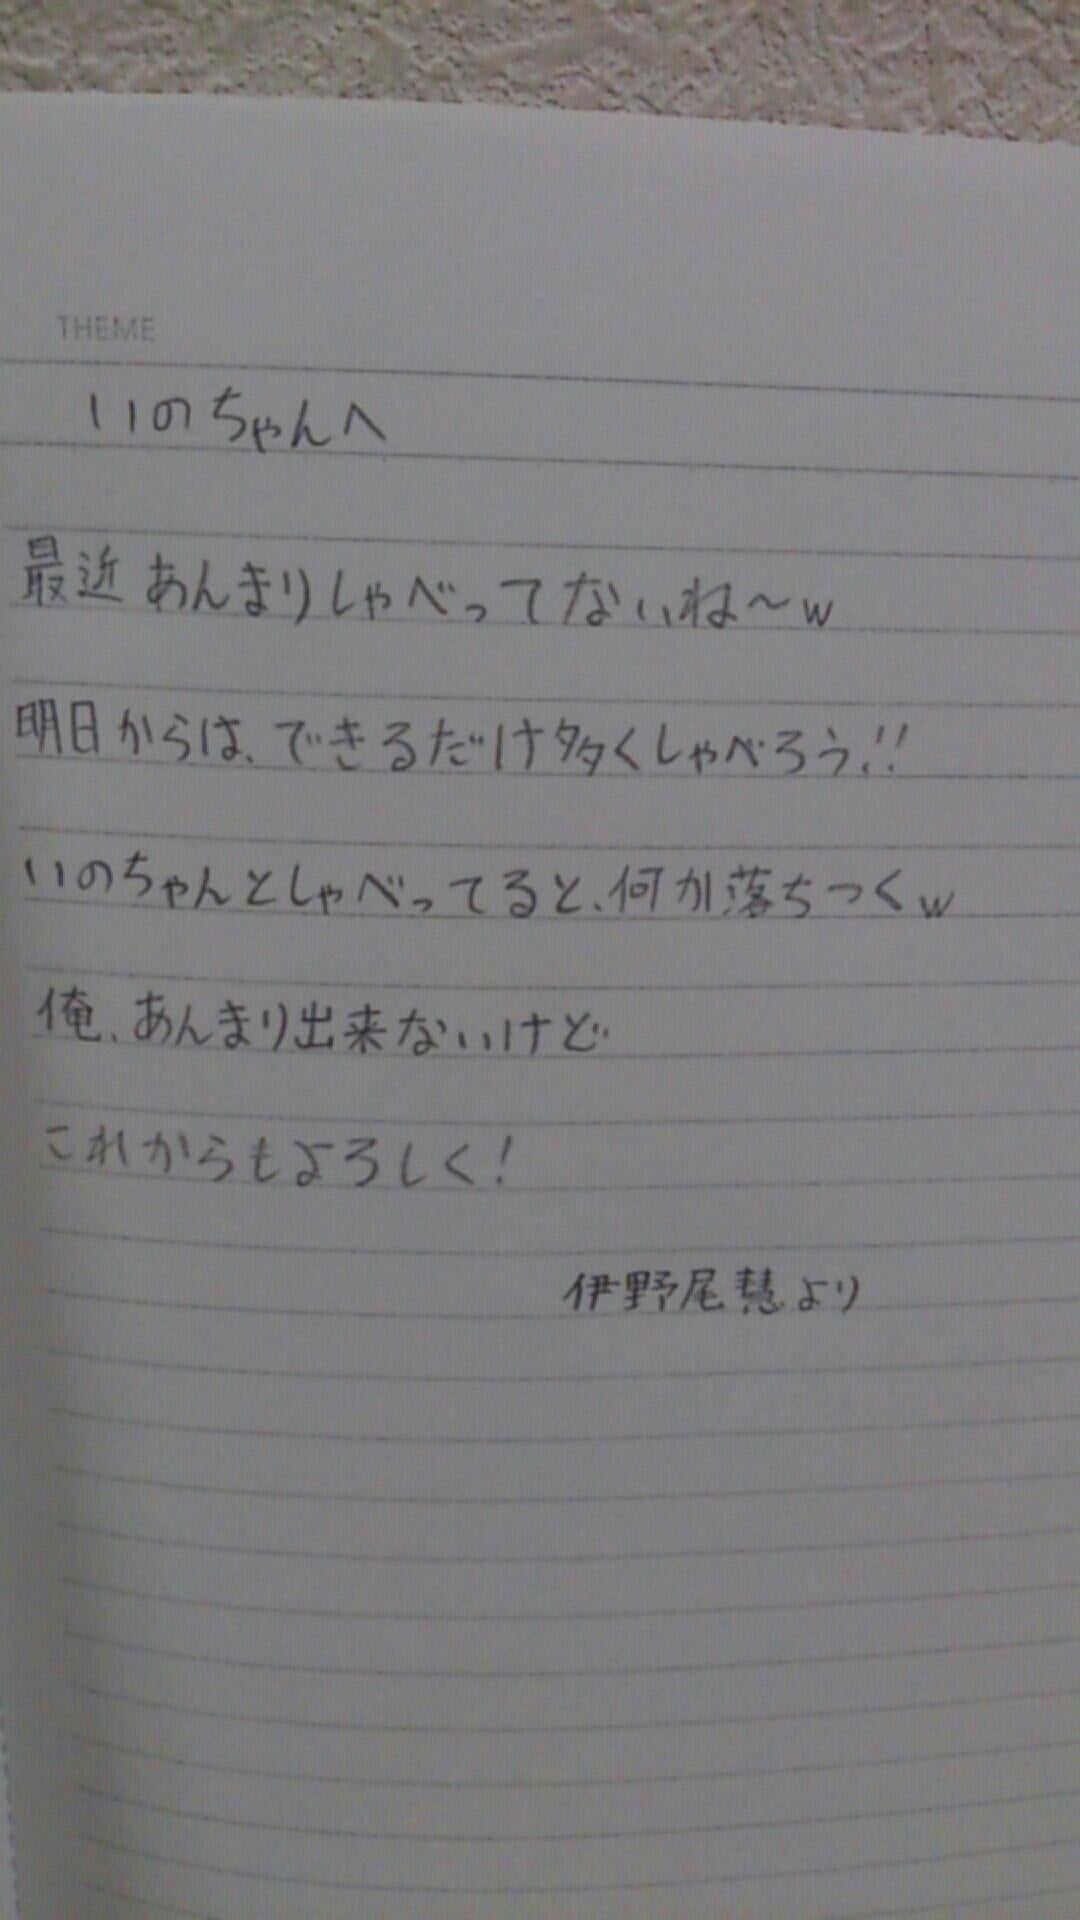 THEME
いのちゃんへ
最近あんまりしゃべってないね〜w
明日からは、できるだけ多くしゃべろう!!
いのちゃんとしゃべってると、何か落ちつくw
俺、あんまり出来ないけど
これからもよろしく!
伊野尾慧より